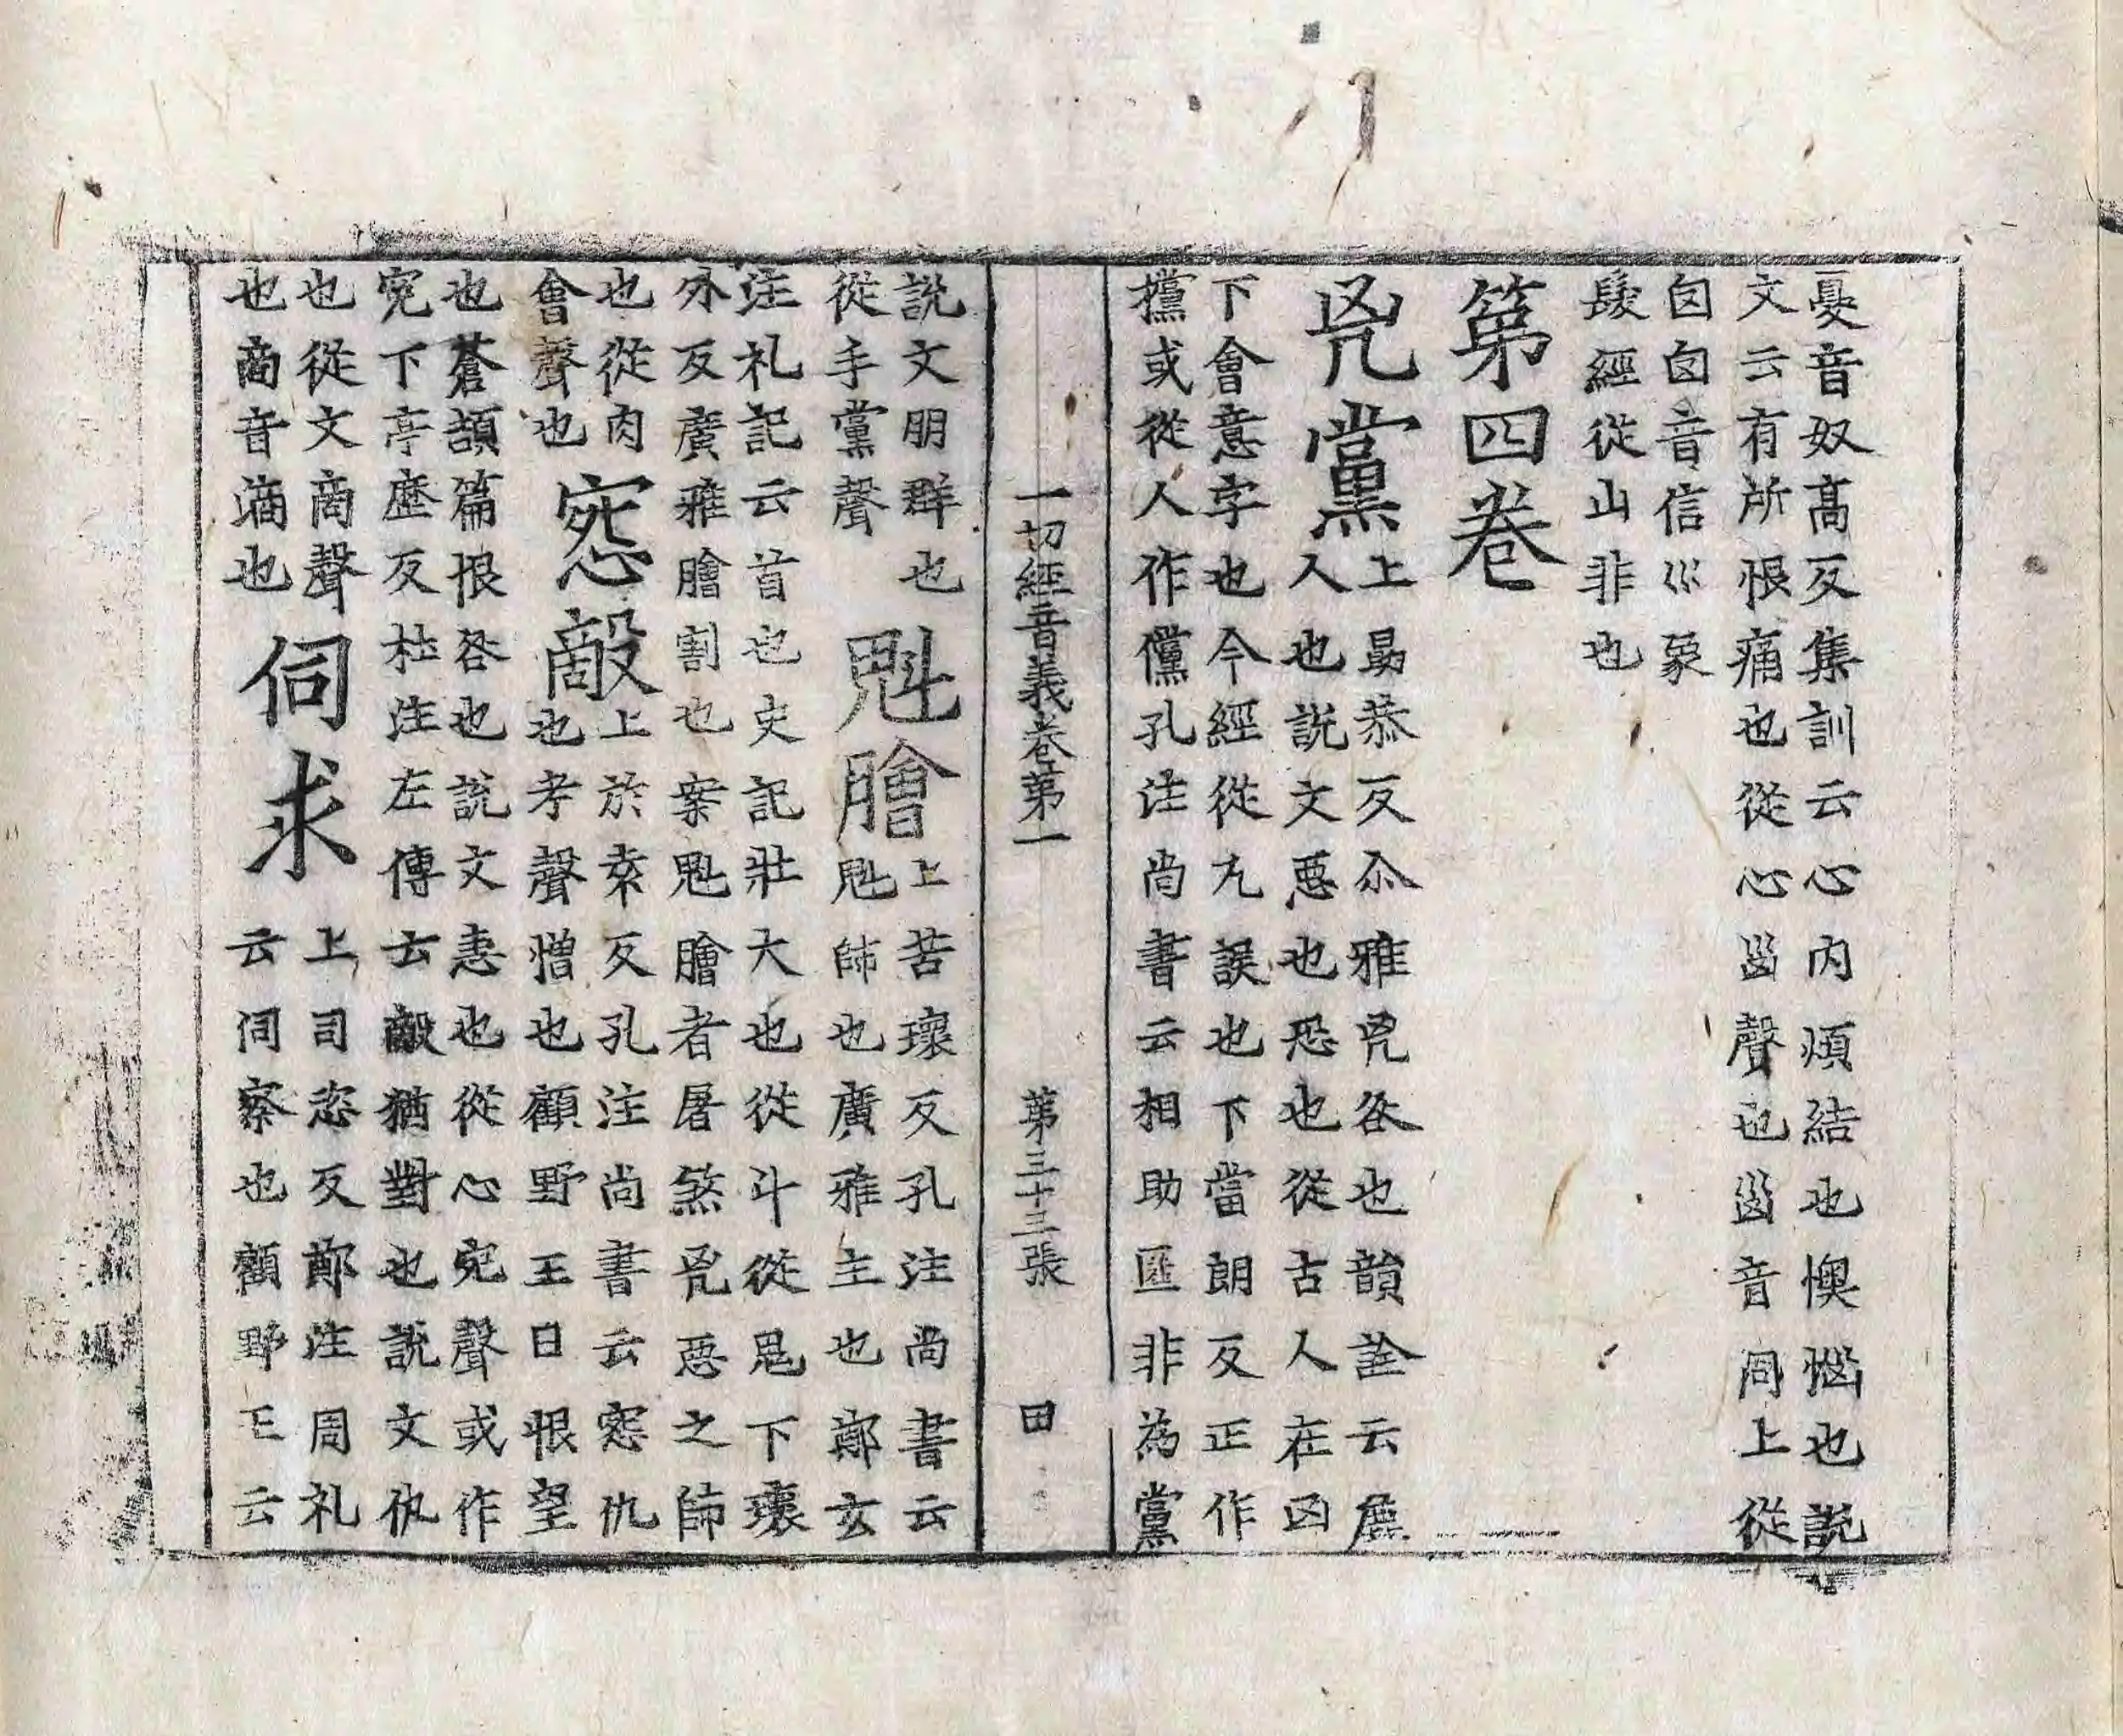 夒音奴髙反集訓云心内煩結也懊惱也說
文云有所恨痛也從心𡿺聲也𡿺音同上從
囟囟音信巛象
髮經從山非也
第四卷
兇黨
上勗恭反尒雅兇咎也韻詮云麁
人也說文惡也恐也從古人在凶
下會意字也今經從九誤也下當朗反正作
攩或從人作儻孔注尚書云相助匪非為黨
一切經音義卷第一 第三十三張 田
說文朋群也
從手黨聲
魁膾
上苦瓌反孔注尚書云
魁師也廣雅主也鄭玄
注礼記云首也史記壯大也從斗從鬼下瓌
外反廣雅膾割也案魁膾者屠煞兇惡之師
也從肉
會聲也
怨敵
上於袁反孔注尚書云怨仇
也考聲憎也顧野王曰恨望
也蒼頡篇恨咎也說文恚也從心宛聲或作
宛下亭歷反杜注左傳云敵猶對也說文仇
也從文啇聲
也啇音滴也
伺求
上司恣反鄭注周礼
云伺察也顧野王云